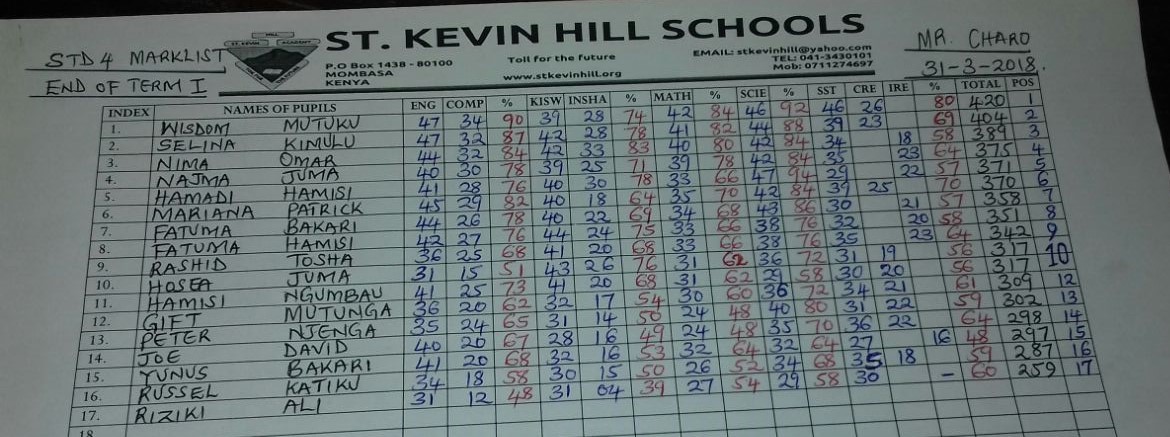 STD 4 MARKLIST
END OF TERM I
HILL
ST. KEVIN ACADEMY
ST. KEVIN HILL SCHOOLS
P.O Box 1438 - 80100
MOMBASA
KENYA
Toll for the future
www.stkevinhill.org
EMAIL: stkevinhill@yahoo.com
TEL: 041-3430101
Mob: 0711274697
MR. CHARO
31-3-2018.
INDEX NAMES OF PUPILS ENG COMP % KISW INSHA % MATH % SCIE % SST CRE IRE % TOTAL POS
1. WISDOM MUTUKU 47 34 90 39 28 74 42 84 46 92 46 26 80 420 1
2. SELINA KIMULU 47 32 87 42 28 78 41 82 44 88 39 23 69 404 2
3. NIMA OMAR 44 32 84 42 33 83 40 80 42 84 34 18 58 389 3
4. NAJMA JUMA 40 30 78 39 25 71 39 78 42 84 35 23 64 375 4
5. HAMADI HAMISI 41 28 76 40 30 78 33 66 47 94 29 22 57 371 5
6. MARIANA PATRICK 45 29 82 40 18 64 35 70 42 84 39 25 70 370 6
7. FATUMA BAKARI 44 26 78 40 22 69 34 68 43 86 30 21 57 358 7
8. FATUMA HAMISI 42 27 76 44 24 75 33 66 38 76 32 20 58 351 8
9. RASHID TOSHA 36 25 68 41 20 68 33 66 38 76 35 23 64 342 9
10. HOSEA JUMA 31 15 51 43 26 76 31 62 36 72 31 19 56 317 10
11. HAMISI NGUMBAU 41 25 73 41 20 68 31 62 29 58 30 20 56 317
12. GIFT MUTUNGA 36 20 62 32 17 54 30 60 36 72 34 21 61 309 12
13. PETER NJENGA 35 24 65 31 14 50 24 48 40 80 31 22 59 302 13
14. JOE DAVID 40 20 67 28 16 49 24 48 35 70 36 22 64 298 14
15. YUNUS BAKARI 41 20 68 32 16 53 32 64 32 64 27 16 48 297 15
16. RUSSEL KATIKU 34 18 58 30 15 50 26 52 34 68 35 18 59 287 16
17. RIZIKI ALI 31 12 48 31 04 39 27 54 29 58 30 – 60 259 17
18